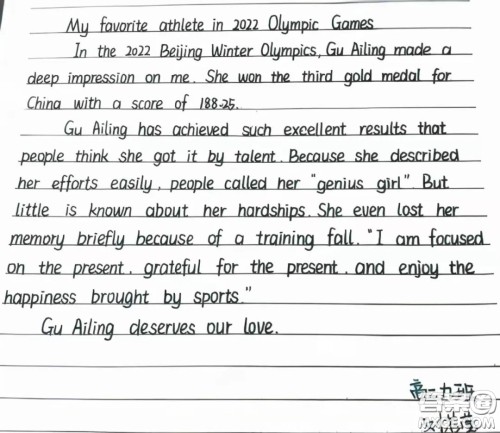 My favorite athlete in 2022 Olympic Games
In the 2022 Beijing Winter Olympics, Gu Ailing made a
deep impression on me. She won the third gold medal for
China with a score of 188.25.
Gu Ailing has achieved such excellent results that
people think she got it by talent. Because she described
her efforts easily, people called her "genius girl". But
little is known about her hardships. She even lost her
memory briefly because of a training fall. "I am focused
on the present, grateful for the present, and enjoy the
happiness brought by sports."
Gu Ailing deserves our love.
高一九班